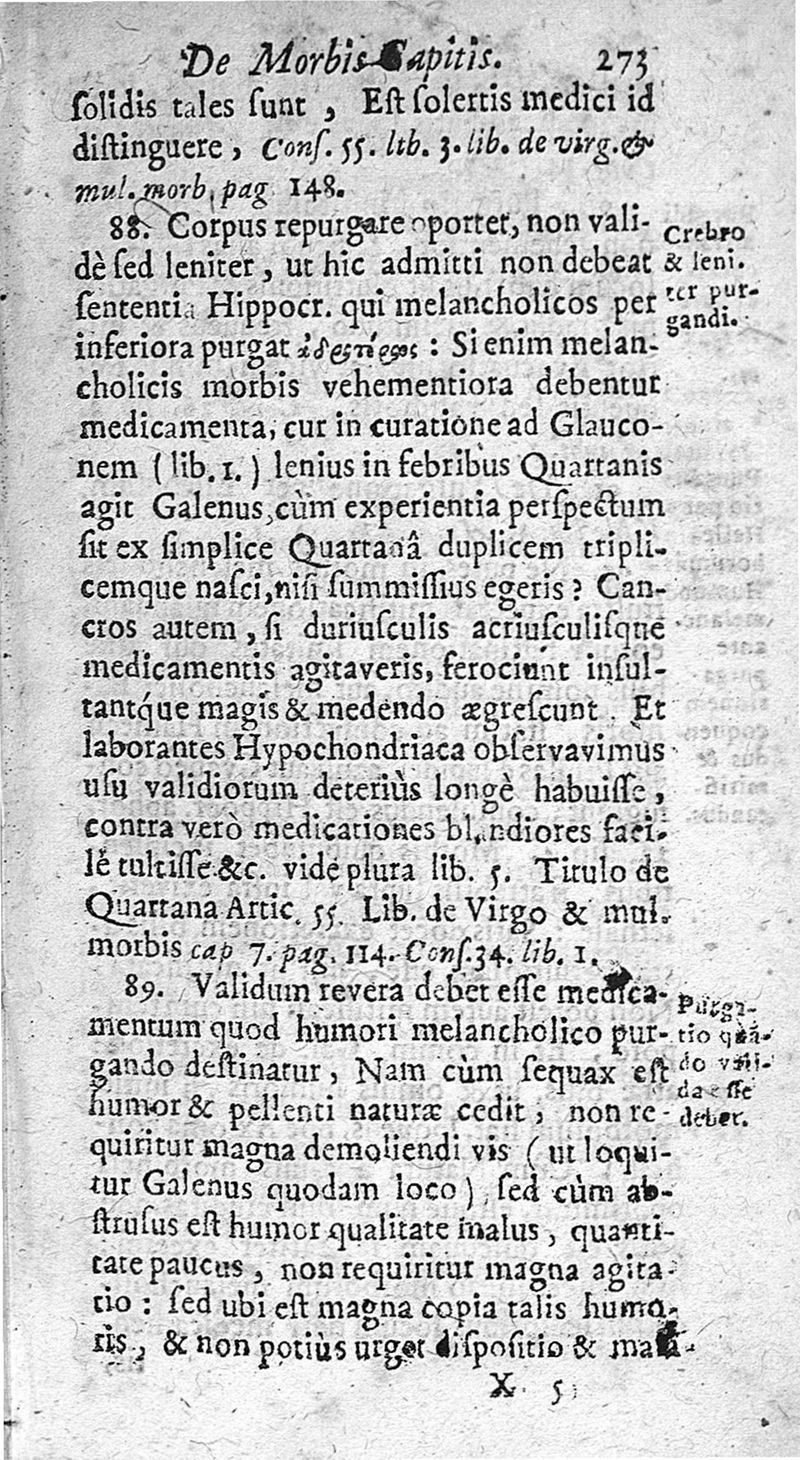 De Morbis Capitis. 273
ſolidis tales ſunt, Eſt ſolertis medici id
diſtinguere, Conſ. 55. lib. 3. lib. de virg. &
mul. morb, pag 148.
88. Corpus repurgare oportet, non vali-
dè ſed leniter, ut hic admitti non debeat
ſententia Hippocr. qui melancholicos per
inferiora purgat : Si enim melan-
cholicis morbis vehementiora debentur
medicamenta, cur in curatione ad Glauco-
nem (lib. 1.) lenius in febribus Quartanis
agit Galenus, cùm experientia perſpectum
ſit ex ſimplice Quartanâ duplicem tripli-
cemque naſci, niſi ſummiſſius egeris? Can-
cros autem, ſi duriuſculis acriuſculiſque
medicamentis agitaveris, ferociunt inſul-
tantq́ue magis & medendo ægreſcunt. Et
laborantes Hypochondriaca obſervavimus
uſu validiorum deteriùs longè habuiſſe,
contra verò medicationes blandiores faci-
lè tuliſſe &c. vide plura lib. 5. Titulo de
Quartana Artic. 55. Lib. de Virgo & mul.
morbis cap 7. pag. 114. Conſ. 34. lib. 1.
89. Validum revera debet eſſe medica-
mentum quod humori melancholico pur-
gando deſtinatur, Nam cùm ſequax eſt
humor & pellenti naturæ cedit, non re-
quiritur magna demoliendi vis (ut loqui-
tur Galenus quodam loco), ſed cùm ab-
ſtruſus eſt humor qualitate malus, quanti-
tate paucus, non requiritur magna agita-
tio: ſed ubi eſt magna copia talis humo-
ris, & non potiùs urget diſpoſitio & mali-
X 5
Crebro
& leni-
ter pur-
gandi.
Purga-
tio quā-
do vali-
da eſſe
debet.